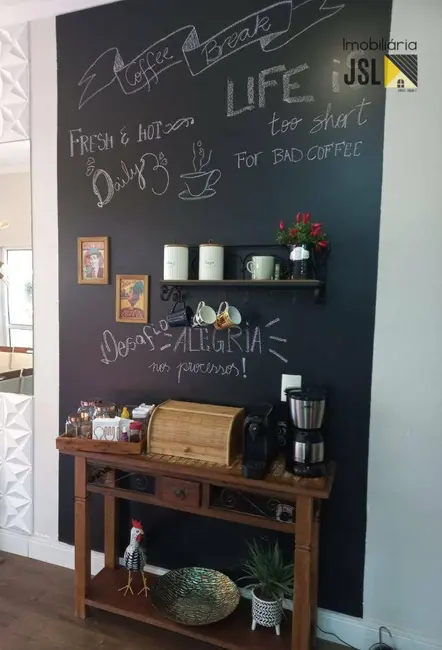 Coffee Break
Imobiliária
JSL
LIFE is
too short
FOR BAD COFFEE
FRESH & HOT
Daily
Desafio ALEGRIA
nos processos!